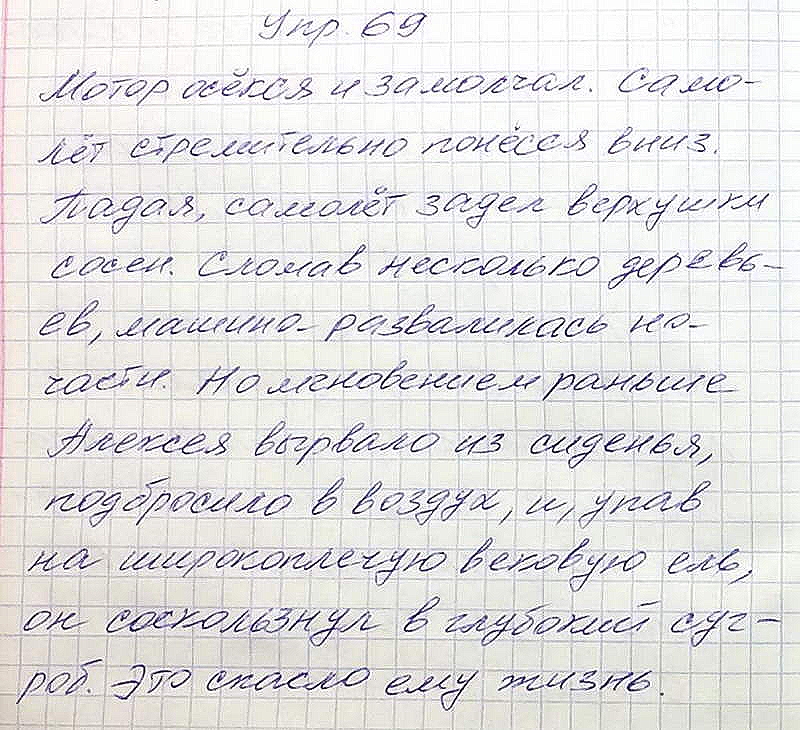 Упр. 69
Мотор осёкся и замолчал. Само-
лёт стремительно понёсся вниз.
Падая, самолёт задел верхушки
сосен. Сломав несколько деревь-
ев, машина развалилась на
части. Но мгновением раньше
Алексея вырвало из сиденья,
подбросило в воздух, и, упав
на широкоплечую вековую ель,
он соскользнул в глубокий суг-
роб. Это спасло ему жизнь.